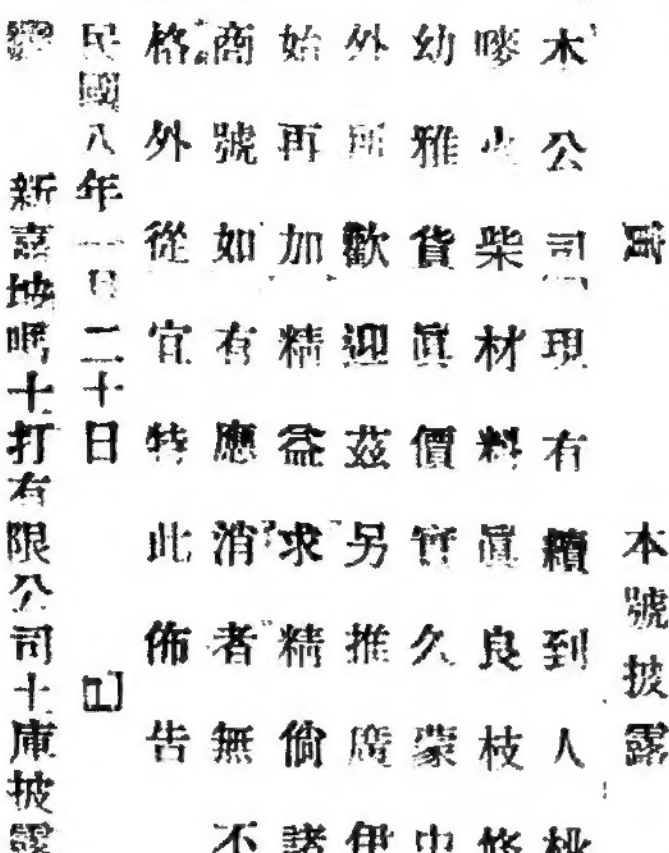 本號披露
本公司現有續到人桃
嘜火柴材料眞良枝條
幼雅貨眞價實久蒙中
外所歡迎茲另推廣伊
始再加精益求精倘諸
商號如有應消者無不
格外從宜特此佈告
民國八年一月二十日
新嘉坡嗎十打有限公司十庫披露